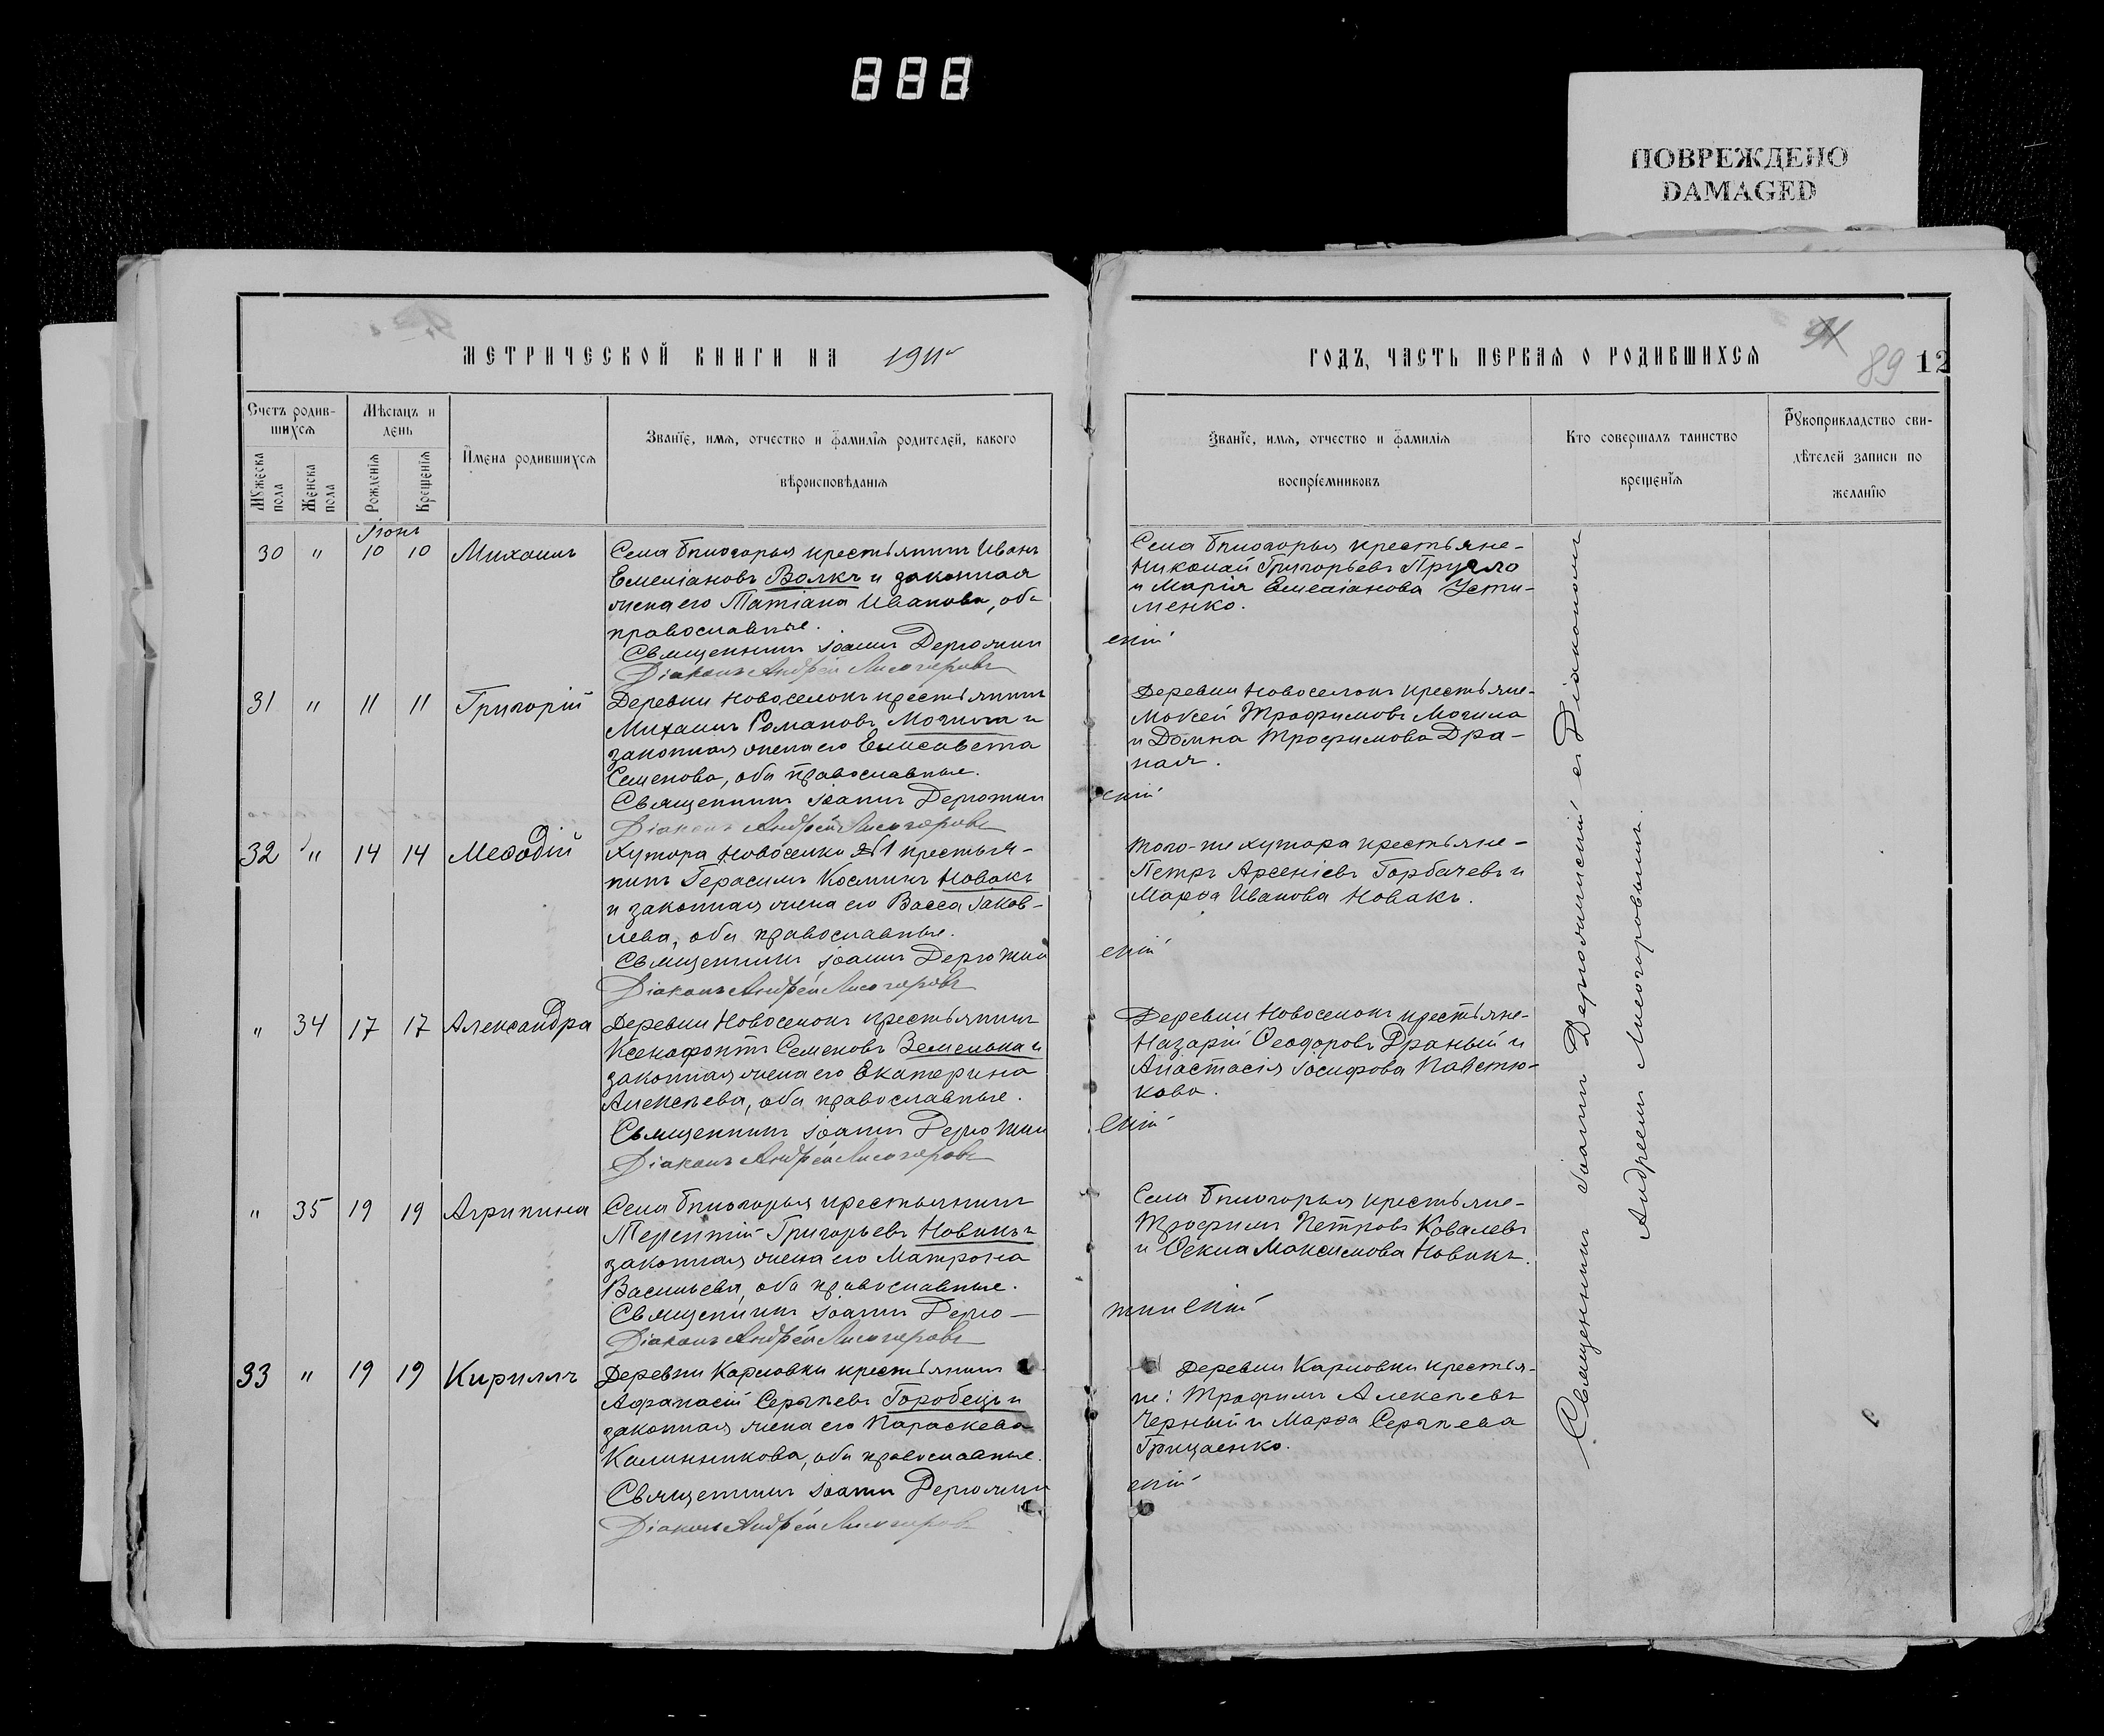 888
ПОВРЕЖДЕНО
DAMAGED
МЕТРИЧЕСКОЙ КНИГИ НА 1911
ГОДЪ, ЧАСТЬ ПЕРВАЯ О РОДИВШИХСЯ
91
89
12
Счетъ родив-
шихся
Мѣсяцъ и
день
Имена родившихся
Званїе, имя, отчество и фамилїя родителей, какого
вѣроисповѣданїя
Мужеска пола
Женска пола
Рожденїя
Крещенїя
Званїе, имя, отчество и фамилїя
воспрїемниковъ
Кто совершалъ таинство
крещенїя
Рукоприкладство сви-
дѣтелей записи по
желанїю
Іюнь
30 " 10 10 Михаилъ
Села Бѣлогорья крестьянинъ Иванъ
Емеліановъ Волкъ и законная
жена его Татіана Иванова, оба
православные.
Священникъ Іоаннъ Держжин
скій
Діаконъ Андрей Лисогоровъ
Села Бѣлогорья крестьяне-
Николай Григорьевъ Пругло
и Марія Емеліанова Усти-
менко.
31 " 11 11 Григорій
Деревни Новоселокъ крестьянинъ
Михаилъ Романовъ Могила и
законная жена его Елисавета
Семенова, оба православные.
Священникъ Іоаннъ
скій
Діаконъ Андрей Лисогоровъ
Деревни Новоселокъ крестьяне-
Моисей Трофимовъ Могила
и Домна Трофимова Дра-
ная.
32 " 14 14 Меѳодій
Хутора Новоселки №1 крестья-
нинъ Герасимъ Косминъ Новакъ
и законная жена его Васса Іаков-
лева, оба православные.
Священникъ Іоаннъ
скій
Діаконъ Андрей Лисогоровъ
того-же хутора крестьяне-
Петръ Арсеніевъ Горбачевъ и
Марѳа Иванова Новакъ.
" 34 17 17 Александра
Деревни Новоселокъ крестьянинъ
Ксенофонтъ Семеновъ Земелька и
законная жена его Екатерина
Алексѣева, оба православные.
Священникъ Іоаннъ
скій
Діаконъ Андрей Лисогоровъ
Деревни Новоселокъ крестьяне-
Назарій Ѳеодоровъ Драный и
Анастасія Іосифова Павлю-
кова.
" 35 19 19 Агрипина
Села Бѣлогорья крестьянинъ
Терентій Григорьевъ Новикъ и
законная жена его Матрона
Васильева, оба православные.
Священникъ Іоаннъ
Діаконъ Андрей Лисогоровъ
Села Бѣлогорья крестьяне-
Трофимъ Петровъ Ковалевъ
и Ѳекла Максимова Новикъ.
33 " 19 19 Кириллъ
Деревни Карловки крестьянинъ
Аѳанасій Сергѣевъ Горобецъ и
законная жена его Параскева
Калинникова, оба православные.
Священникъ Іоаннъ
скій
Діаконъ Андрей Лисогоровъ
Деревни Карловки крестья-
не: Трофимъ Алексѣевъ
Черный и Марѳа Сергѣева
Грицаенко.
Священникъ Іоаннъ съ Діакономъ
Андреемъ Лисогоровымъ.